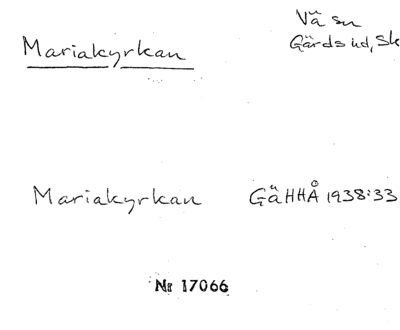 Mariakyrkan
Vä sn
Gärds hd, Sk
Mariakyrkan GäHHÅ 1938:33
Nr 17066